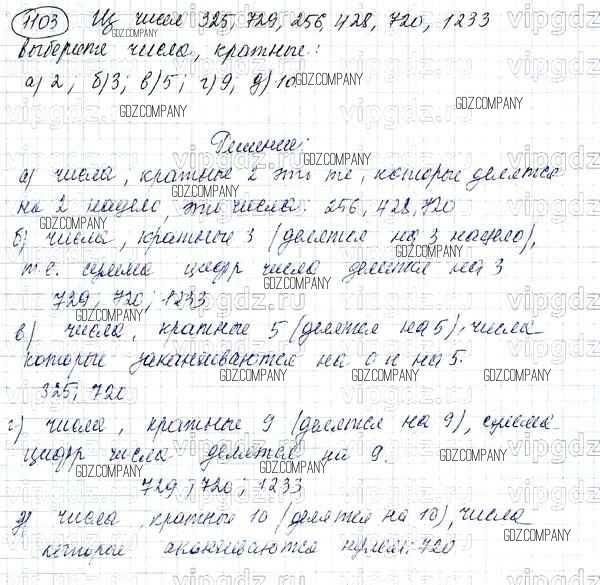 1103 Из чисел 325, 729, 256, 428, 720, 1233
выберите числа, кратные:
а) 2; б) 3; в) 5; г) 9; д) 10
Решение:
а) числа, кратные 2 это те, которые делятся
на 2 нацело, это числа: 256, 428, 720
б) числа, кратные 3 (делятся на 3 нацело),
т.е. сумма цифр числа делится на 3
729; 720; 1233
в) числа, кратные 5 (делятся на 5), числа
которые заканчиваются на 0 и на 5.
325; 720
г) числа, кратные 9 (делятся на 9), сумма
цифр числа делится на 9.
729; 720; 1233
д) числа, кратные 10 (делятся на 10), числа
которые заканчиваются нулем: 720